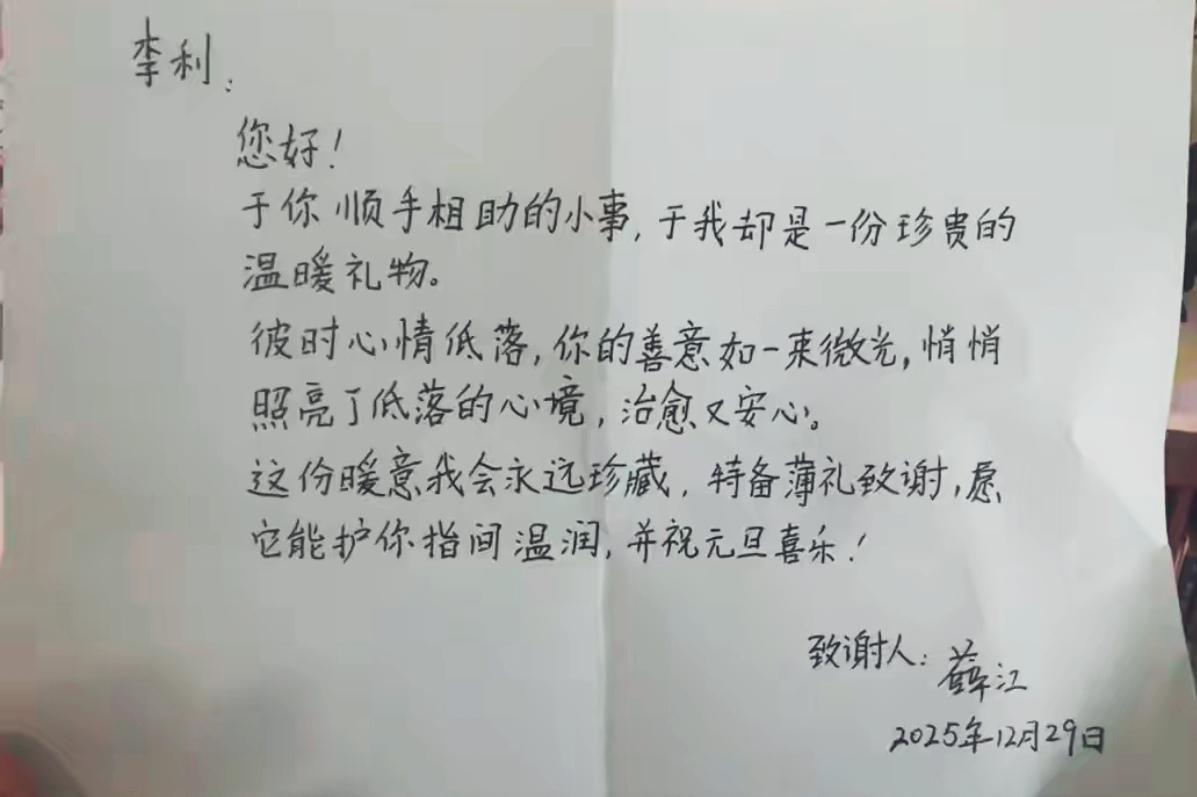 李利：
您好！
于你顺手相助的小事，于我却是一份珍贵的
温暖礼物。
彼时心情低落，你的善意如一束微光，悄悄
照亮了低落的心境，治愈又安心。
这份暖意我会永远珍藏，特备薄礼致谢，愿
它能护你指间温润，并祝元旦喜乐！
致谢人：薛江
2025年12月29日